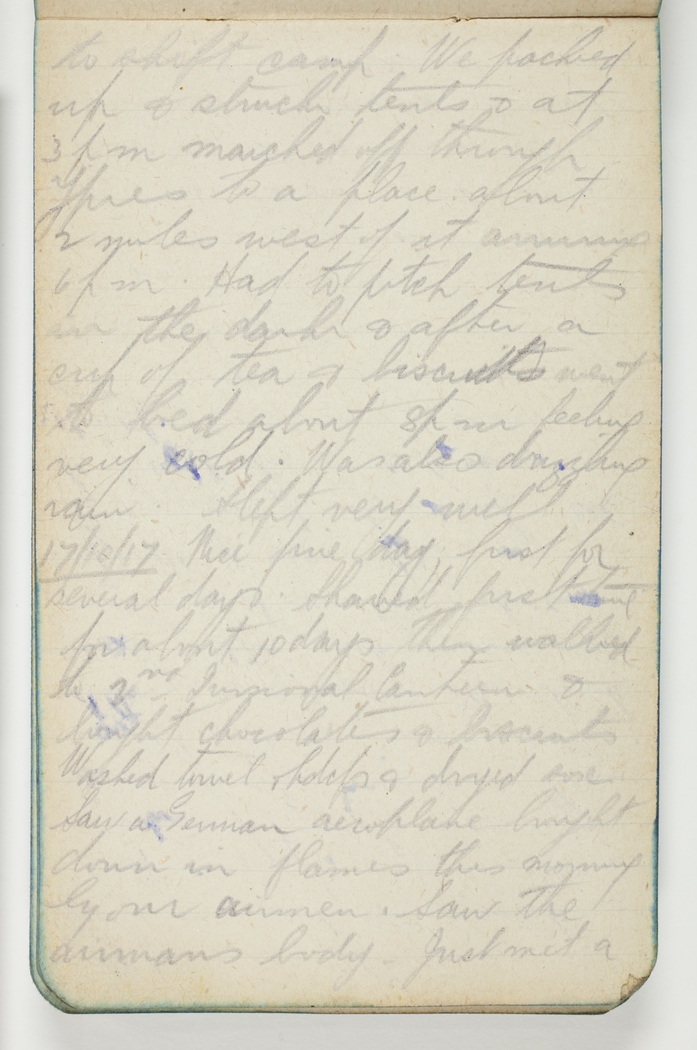 to shift camp We packed
up & struck tents & at
3 pm marched off through
Ypres to a place about
2 miles west of it arriving
6 pm. Had to pitch tents
in the dark & after a
cup of tea & biscuits went
to bed about 8 pm feeling
very cold. Was also drizzling
rain. Slept very well
17/10/17 Nice fine day, first for
several days. Shaved first time
for about 10 days then walked
to 2nd Divisional Canteen &
bought chocolates & biscuits
Washed towel & hdkfs & dryed
Saw a German aeroplane brought
down in flames this morning
by our airmen. Saw the
airmans body. Just met a